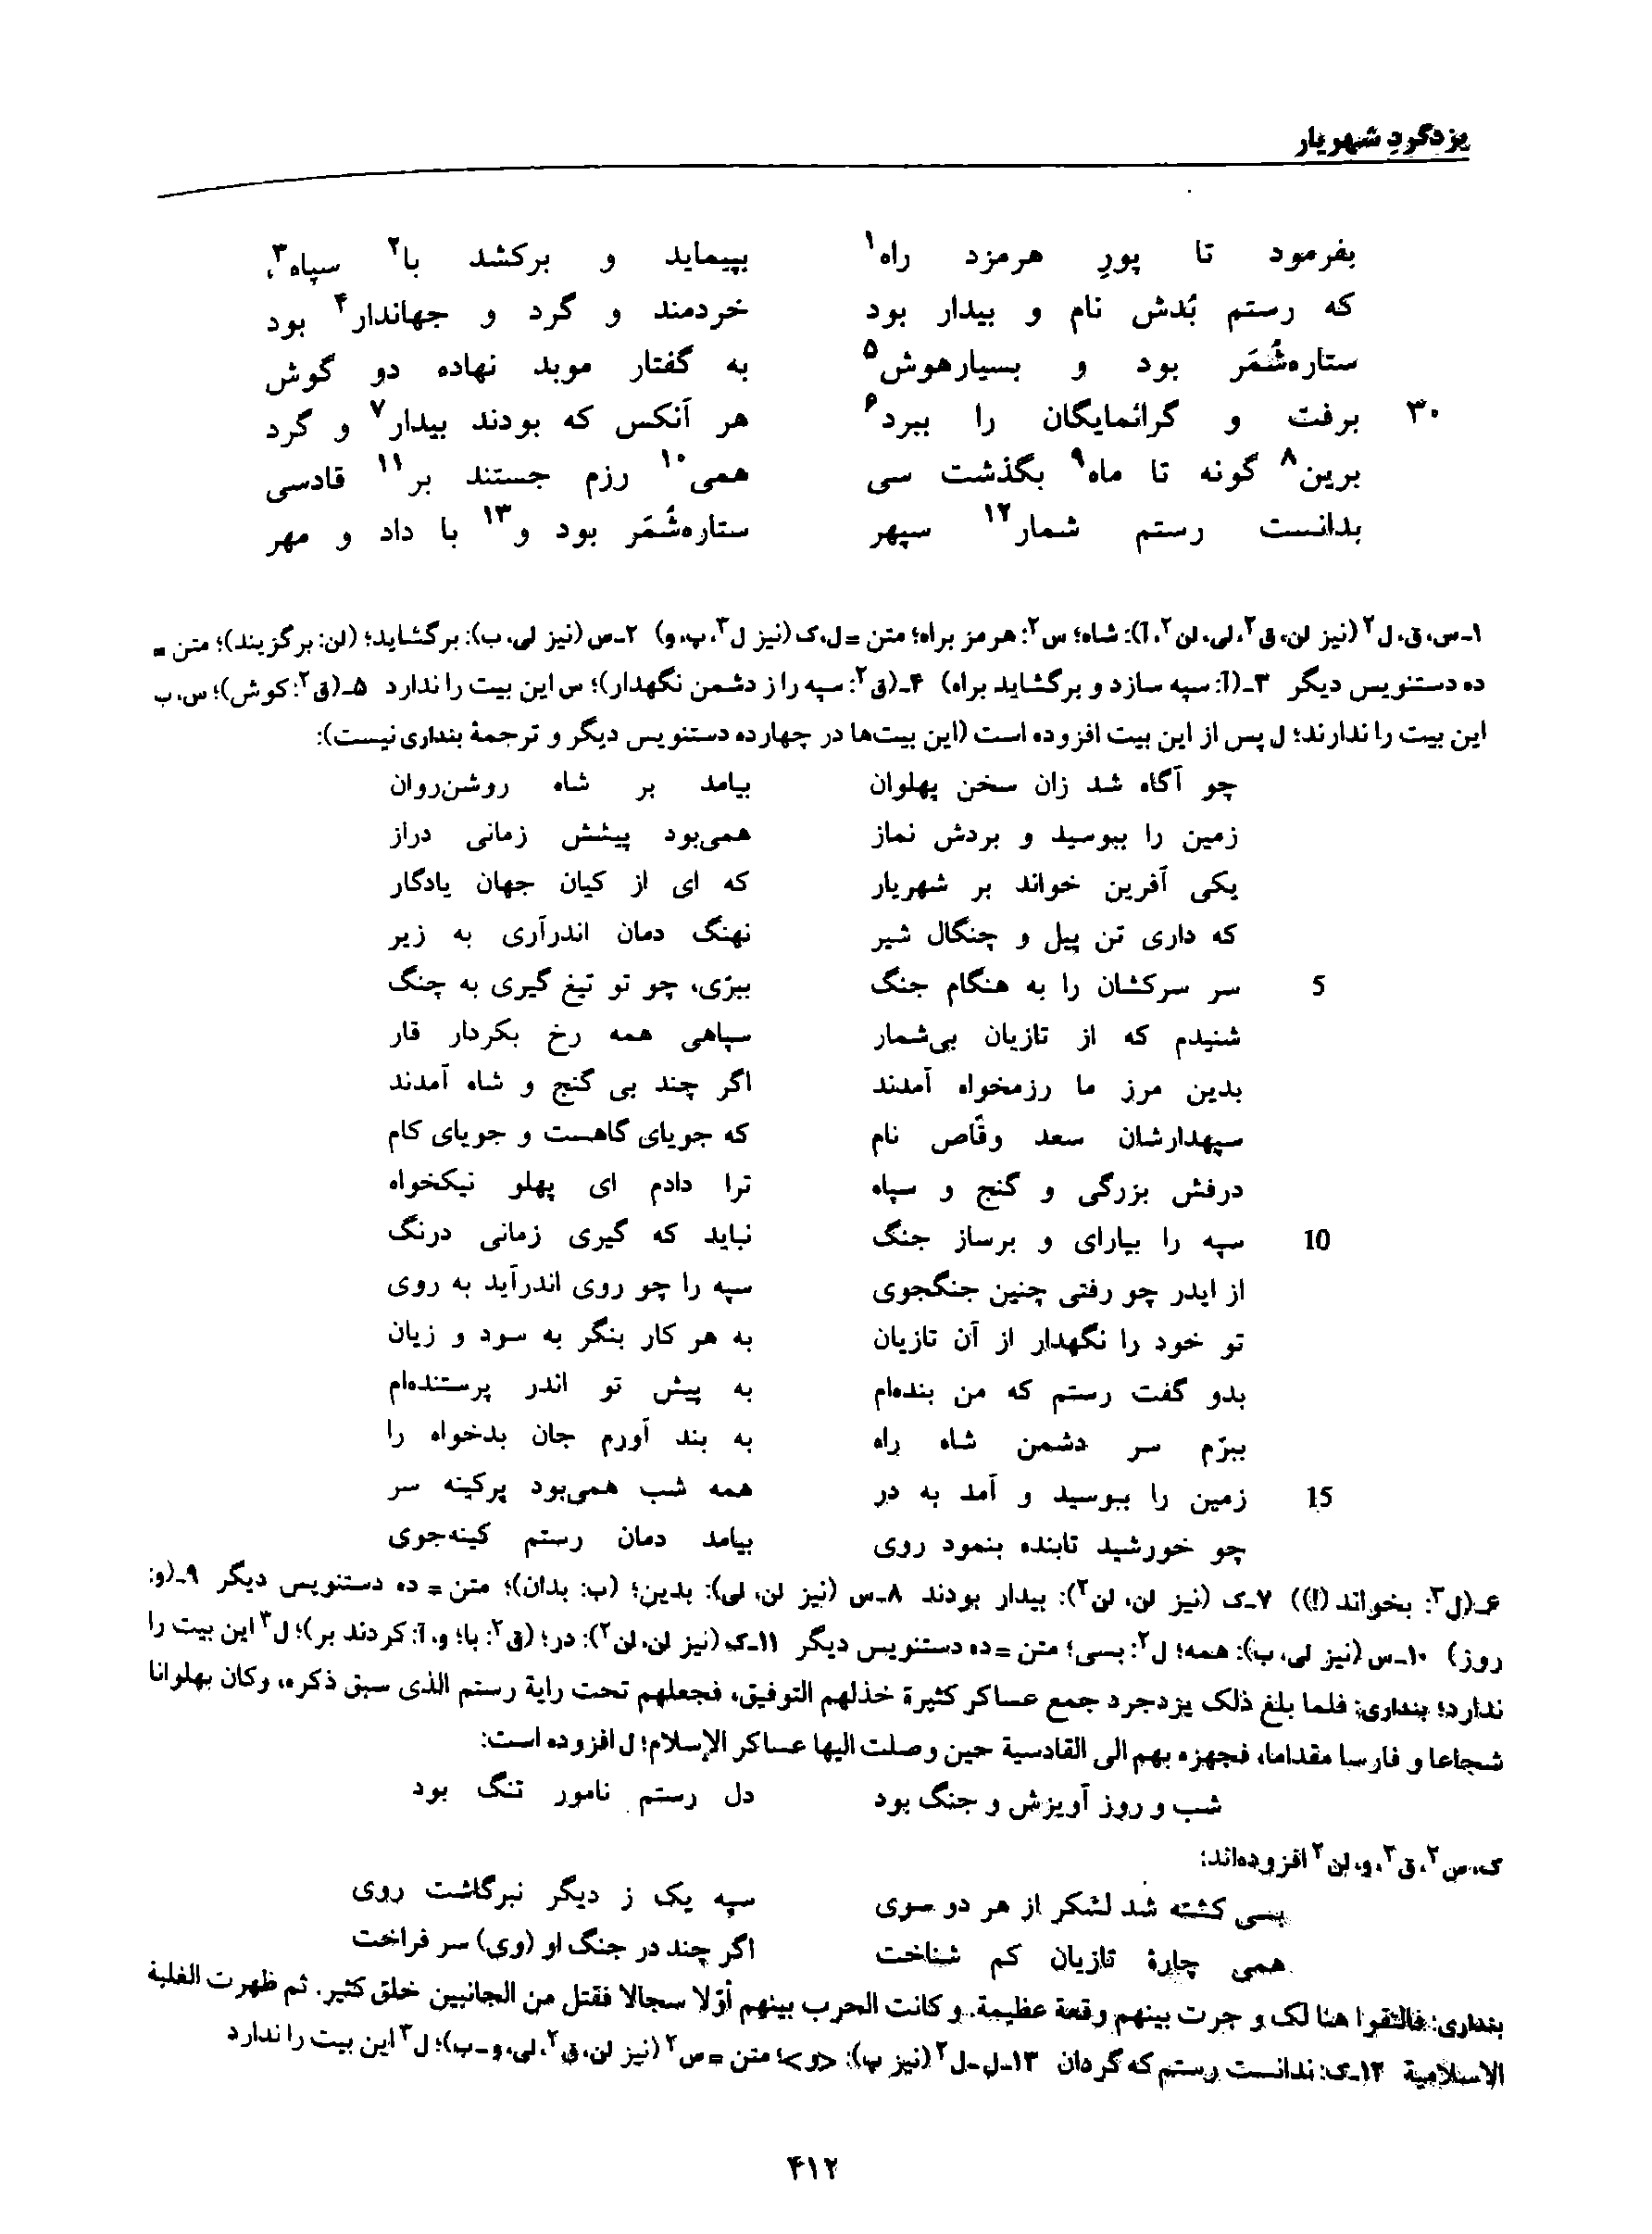 یزدگردِ شهریار
بفرمود تا پورِ هرمزد راه۱ بپیماید و برکشد با۲ سپاه۳،
که رستم بُدش نام و بیدار بود خردمند و گرد و جهاندار۴ بود
ستاره‌شُمَر بود و بسیارهوش۵ به گفتار موبد نهاده دو گوش
۳۰ برفت و گرانمایگان را ببرد۶ هر آنکس که بودند بیدار۷ و گرد
برین۸ گونه تا ماه۹ بگذشت سی همی۱۰ رزم جستند بر۱۱ قادسی
بدانست رستم شمار۱۲ سپهر ستاره‌شُمَر بود و۱۳ با داد و مهر
۱ـ س، ق، ل۲ (نیز لن، ق۲، لی، لن۲، آ): شاه؛ س۲: هرمز براه؛ متن = ل، ک (نیز ل۳، پ، و) ۲ـ س (نیز لی، ب): برگشاید؛ (لن: برگزیند)؛ متن =
ده دستنویس دیگر ۳ـ (آ: سپه سازد و برگشاید براه) ۴ـ (ق۲: سپه را ز دشمن نگهدار)؛ س این بیت را ندارد ۵ـ (ق۲: کوش)؛ س، ب
این بیت را ندارند؛ ل پس از این بیت افزوده است (این بیت‌ها در چهارده دستنویس دیگر و ترجمهٔ بنداری نیست):
چو آگاه شد زان سخن پهلوان بیامد بر شاه روشن‌روان
زمین را ببوسید و بردش نماز همی‌بود پیشش زمانی دراز
یکی آفرین خواند بر شهریار که ای از کیان جهان یادگار
که داری تن پیل و چنگال شیر نهنگ دمان اندرآری به زیر
5 سر سرکشان را به هنگام جنگ ببرّی، چو تو تیغ گیری به چنگ
شنیدم که از تازیان بی‌شمار سپاهی همه رخ بکردار قار
بدین مرز ما رزمخواه آمدند اگر چند بی گنج و شاه آمدند
سپهدارشان سعد وقّاص نام که جویای گاهست و جویای کام
درفش بزرگی و گنج و سپاه ترا دادم ای پهلو نیکخواه
10 سپه را بیارای و برساز جنگ نباید که گیری زمانی درنگ
از ایدر چو رفتی چنین جنگجوی سپه را چو روی اندرآید به روی
تو خود را نگهدار از آن تازیان به هر کار بنگر به سود و زیان
بدو گفت رستم که من بنده‌ام به پیش تو اندر پرستنده‌ام
ببرّم سر دشمن شاه راه به بند آورم جان بدخواه را
15 زمین را ببوسید و آمد به در همه شب همی‌بود پرکینه سر
چو خورشید تابنده بنمود روی بیامد دمان رستم کینه‌جوی
۶ـ (ل۳: بخواند (!)) ۷ـ ک (نیز لن، لن۲): بیدار بودند ۸ـ س (نیز لن، لی): بدین؛ (ب: بدان)؛ متن = ده دستنویس دیگر ۹ـ (و:
روز) ۱۰ـ س (نیز لی، ب): همه؛ ل۲: بسی؛ متن = ده دستنویس دیگر ۱۱ـ ک (نیز لن، لن۲): در؛ (ق۲: با؛ و، آ: کردند بر)؛ ل۳ این بیت را
ندارد؛ بنداری: فلما بلغ ذلک یزدجرد جمع عساکر کثیرة خذلهم التوفیق، فجعلهم تحت رایة رستم الذی سبق ذکره، وکان بهلوانا
شجاعا و فارسا مقداما، فجهزه بهم الی القادسیة حین وصلت الیها عساکر الإسلام؛ ل افزوده است:
شب و روز آویزش و جنگ بود دل رستم نامور تنگ بود
ک، س۲، ق۲، و، لن۲ افزوده‌اند:
بسی کشته شد لشکر از هر دو سوی سپه یک ز دیگر نبرگاشت روی
همی چارهٔ تازیان کم شناخت اگر چند در جنگ او (وی) سر فراخت
بنداری: فالتقوا هنالک و جرت بینهم وقعة عظیمة. و کانت الحرب بینهم أوّلا سجالا فقتل من الجانبین خلق کثیر. ثم ظهرت الغلبة
الاسلامیة ۱۲ـ ک: ندانست رستم که گردان ۱۳ـ ل-ل۲ (نیز پ): <و>؛ متن = س۲ (نیز لن، ق۲، لی، و-ب)؛ ل۳ این بیت را ندارد
۴۱۲